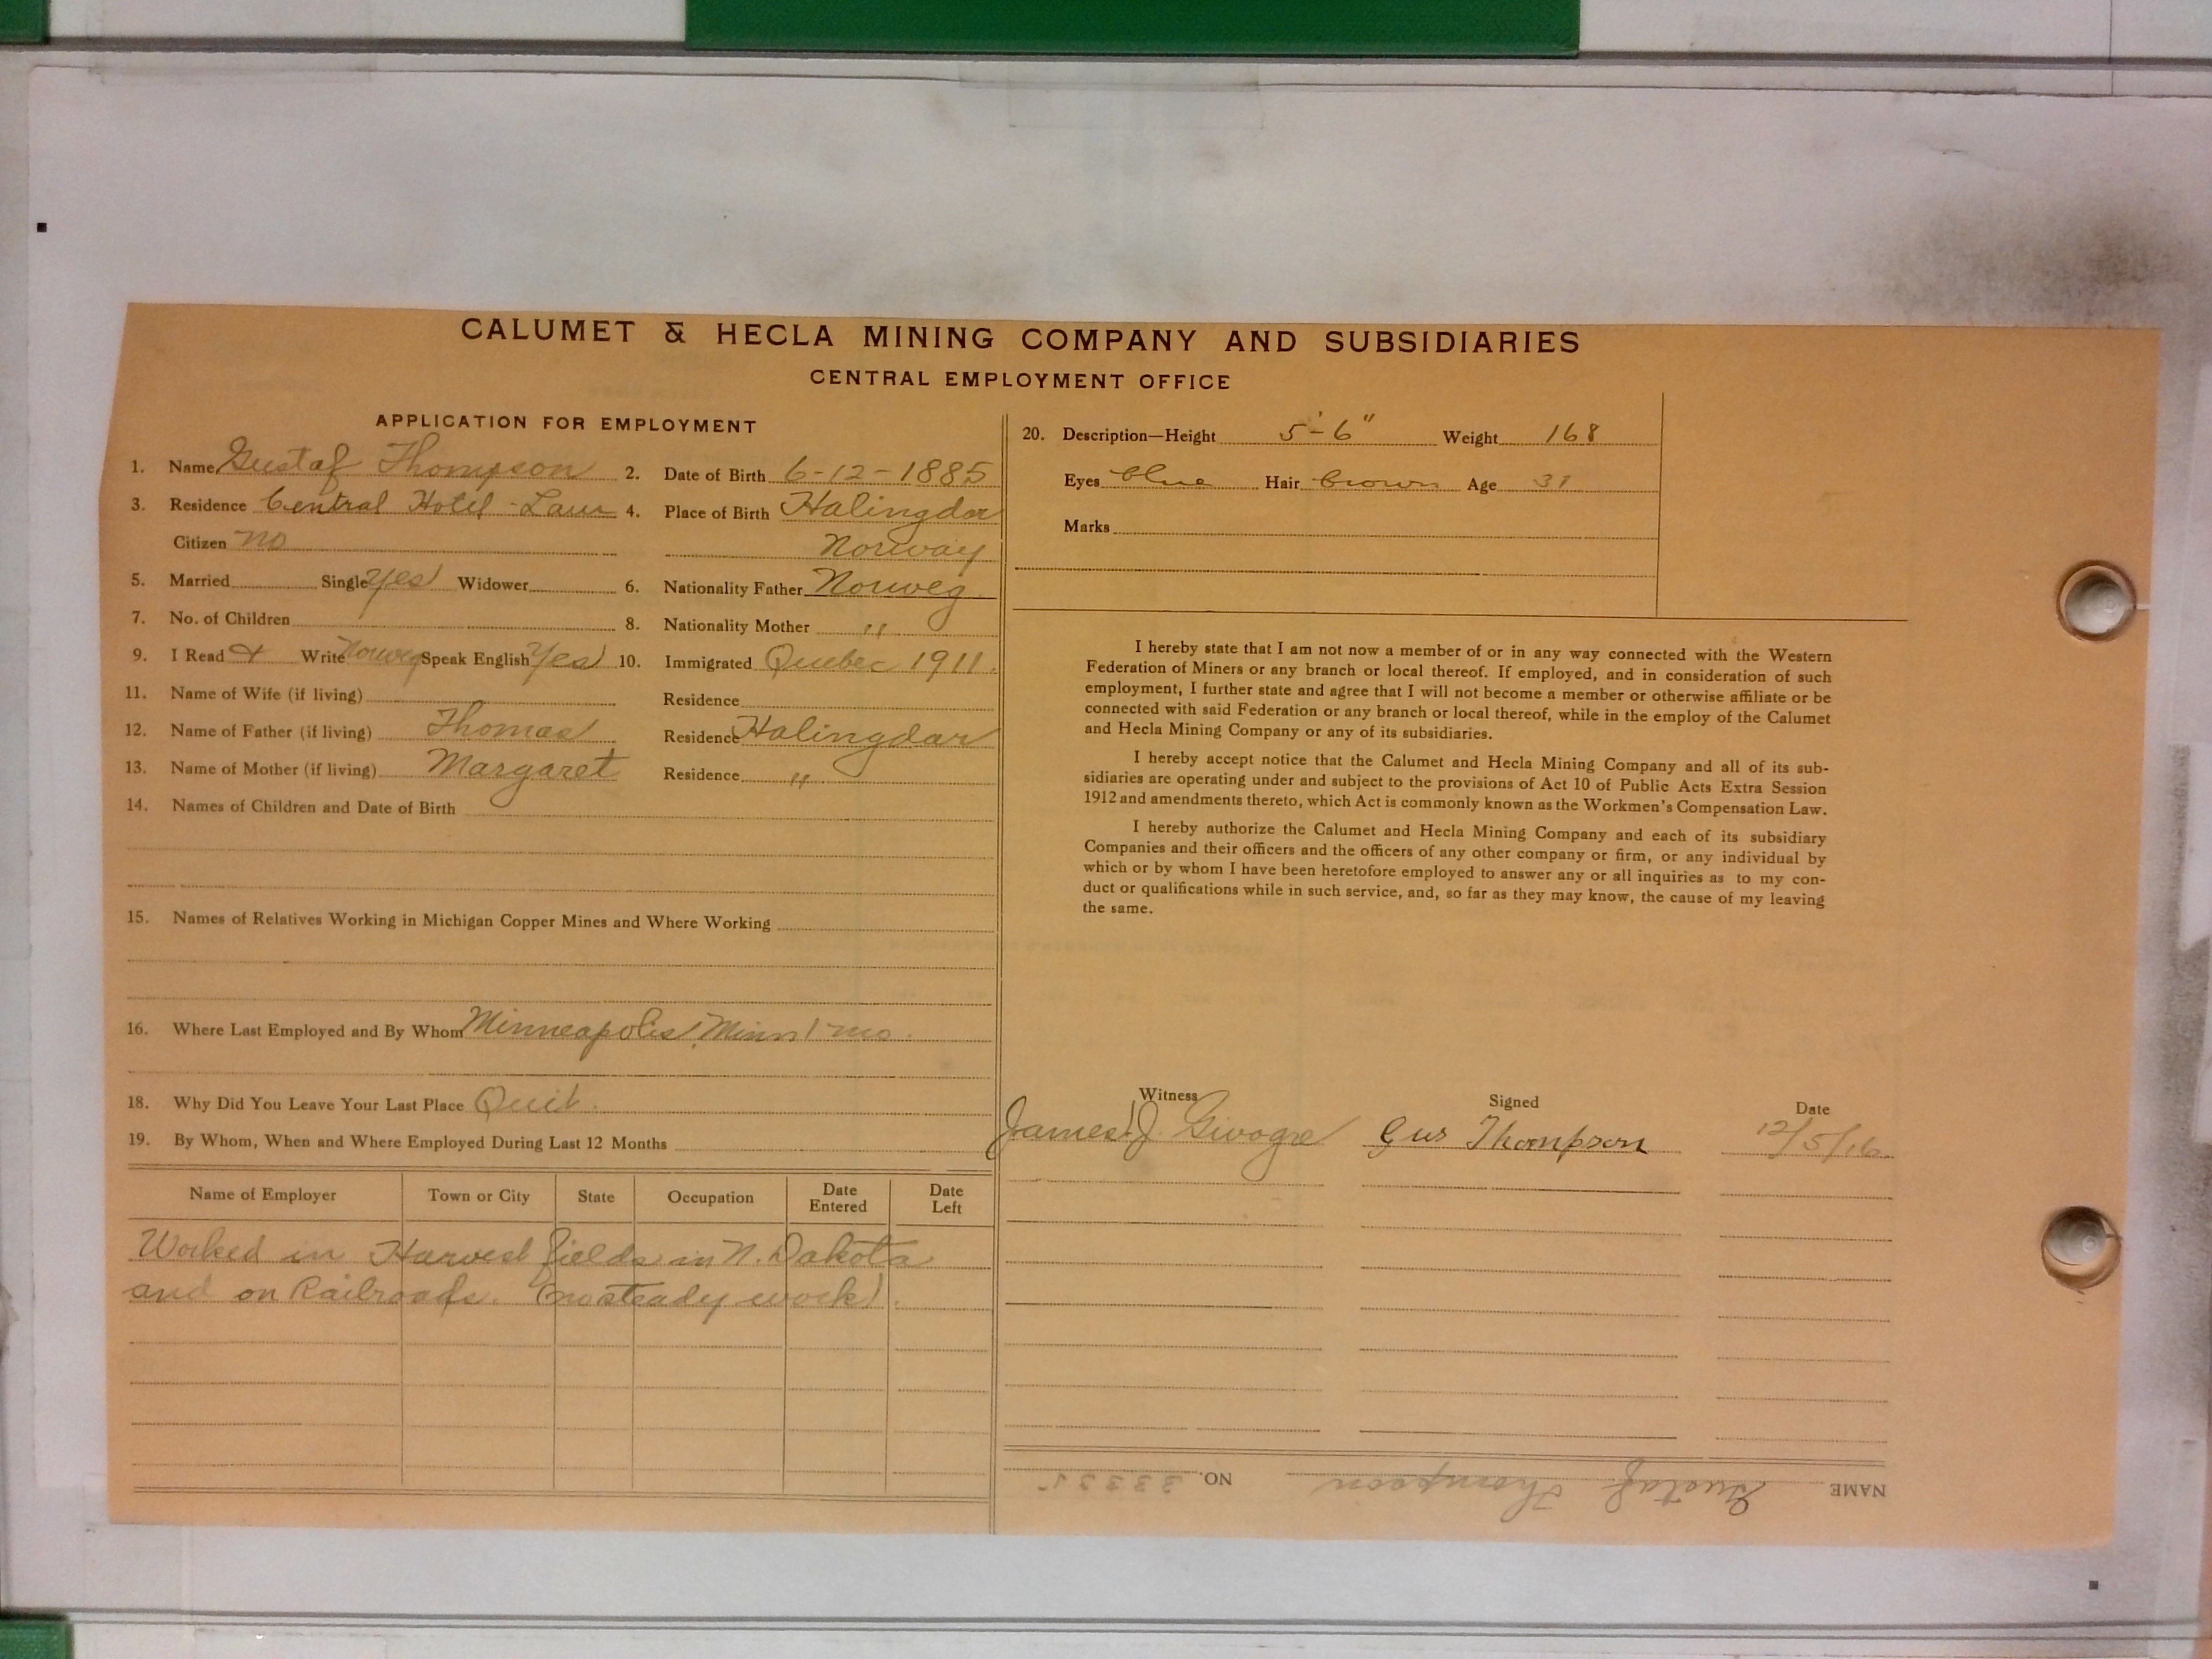 CALUMET & HECLA MINING COMPANY AND SUBSIDIARIES
CENTRAL EMPLOYMENT OFFICE
APPLICATION FOR EMPLOYMENT
1. Name Gustaf Thompson 2. Date of Birth 6-12-1885
3. Residence Central Hotel - Laur 4. Place of Birth Halingdar
Citizen no Norway
5. Married Single yes Widower 6. Nationality Father Norweg.
7. No. of Children 8. Nationality Mother "
9. I Read & Write Norweg Speak English Yes 10. Immigrated Quebec 1911.
11. Name of Wife (if living) Residence
12. Name of Father (if living) Thomas Residence Halingdar
13. Name of Mother (if living) Margaret Residence "
14. Names of Children and Date of Birth
15. Names of Relatives Working in Michigan Copper Mines and Where Working
16. Where Last Employed and By Whom Minneapolis, Minn 1 mo.
18. Why Did You Leave Your Last Place Quit.
19. By Whom, When and Where Employed During Last 12 Months
Name of Employer Town or City State Occupation Date Entered Date Left
Worked in Harvest fields in N. Dakota
and on Railroads. (no steady work).
20. Description—Height 5'-6" Weight 168
Eyes blue Hair brown Age 31
Marks
I hereby state that I am not now a member of or in any way connected with the Western
Federation of Miners or any branch or local thereof. If employed, and in consideration of such
employment, I further state and agree that I will not become a member or otherwise affiliate or be
connected with said Federation or any branch or local thereof, while in the employ of the Calumet
and Hecla Mining Company or any of its subsidiaries.
I hereby accept notice that the Calumet and Hecla Mining Company and all of its sub-
sidiaries are operating under and subject to the provisions of Act 10 of Public Acts Extra Session
1912 and amendments thereto, which Act is commonly known as the Workmen's Compensation Law.
I hereby authorize the Calumet and Hecla Mining Company and each of its subsidiary
Companies and their officers and the officers of any other company or firm, or any individual by
which or by whom I have been heretofore employed to answer any or all inquiries as to my con-
duct or qualifications while in such service, and, so far as they may know, the cause of my leaving
the same.
Witness Signed Date
James J. Gus Thompson 12/5/16
NAME Gustaf Thompson NO.